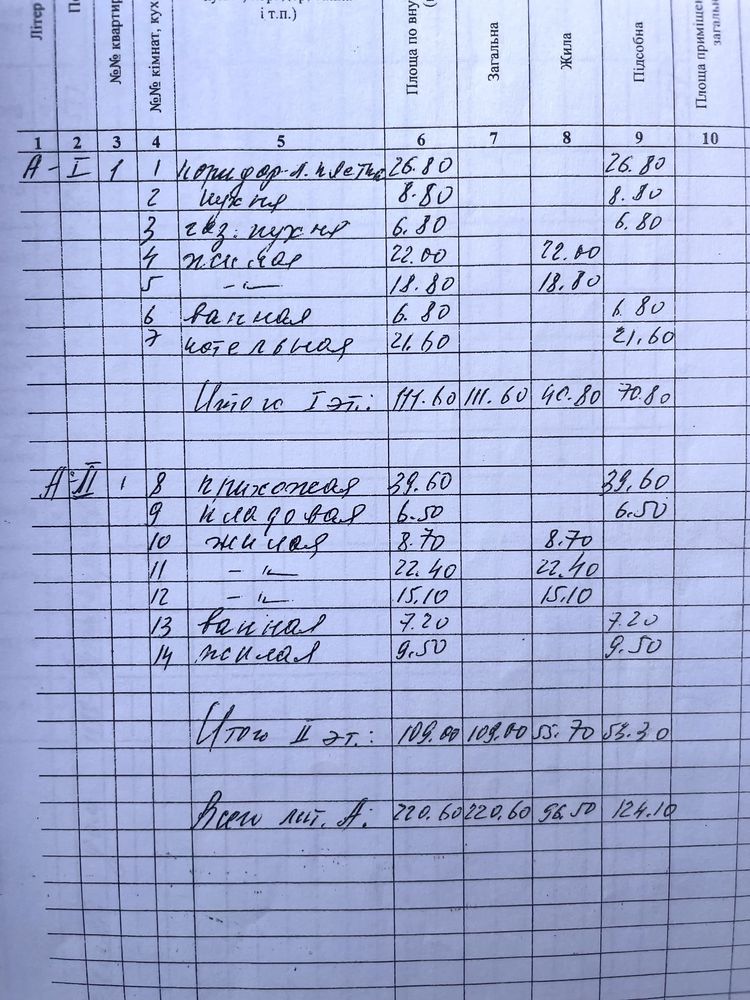 і т.п.)
Літер
№№ квартир
№№ кімнат, кух
Площа по вну
Загальна
Жила
Підсобна
Площа приміщен
загальн
1 2 3 4 5 6 7 8 9 10
А - I 1 1 коридор-л. клетка 26.80 26.80
2 кухня 8.80 8.80
3 газ. кухня 6.80 6.80
4 жилая 22.00 22.00
5 -"- 18.80 18.80
6 ванная 6.80 6.80
7 котельная 21.60 21.60
Итого I эт.: 111.60 111.60 40.80 70.80
А-II 1 8 прихожая 39.60 39.60
9 кладовая 6.50 6.50
10 жилая 8.70 8.70
11 -"- 22.40 22.40
12 -"- 15.10 15.10
13 ванная 7.20 7.20
14 жилая 9.50 9.50
Итого II эт.: 109.00 109.00 55.70 53.30
Всего лит. А: 220.60 220.60 96.50 124.10